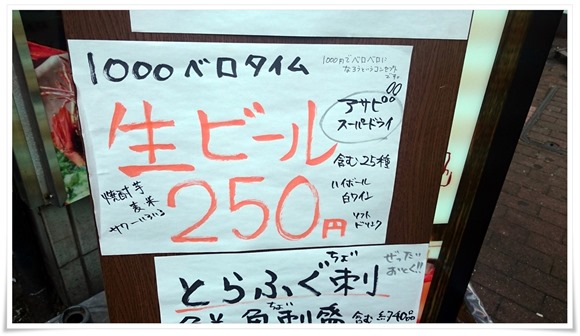 1000ベロタイム
1000円でベロベロに
なろうというコンセプト
アサヒ
スーパードライ
生ビール
含む25種
焼酎芋
麦米
サワーいろいろ
ハイボール
白ワイン
ソフト
ドリンク
250円
ぜったい
おとく!!
ちょい
とらふぐ刺
ちょい
魚刺盛
含む約40品